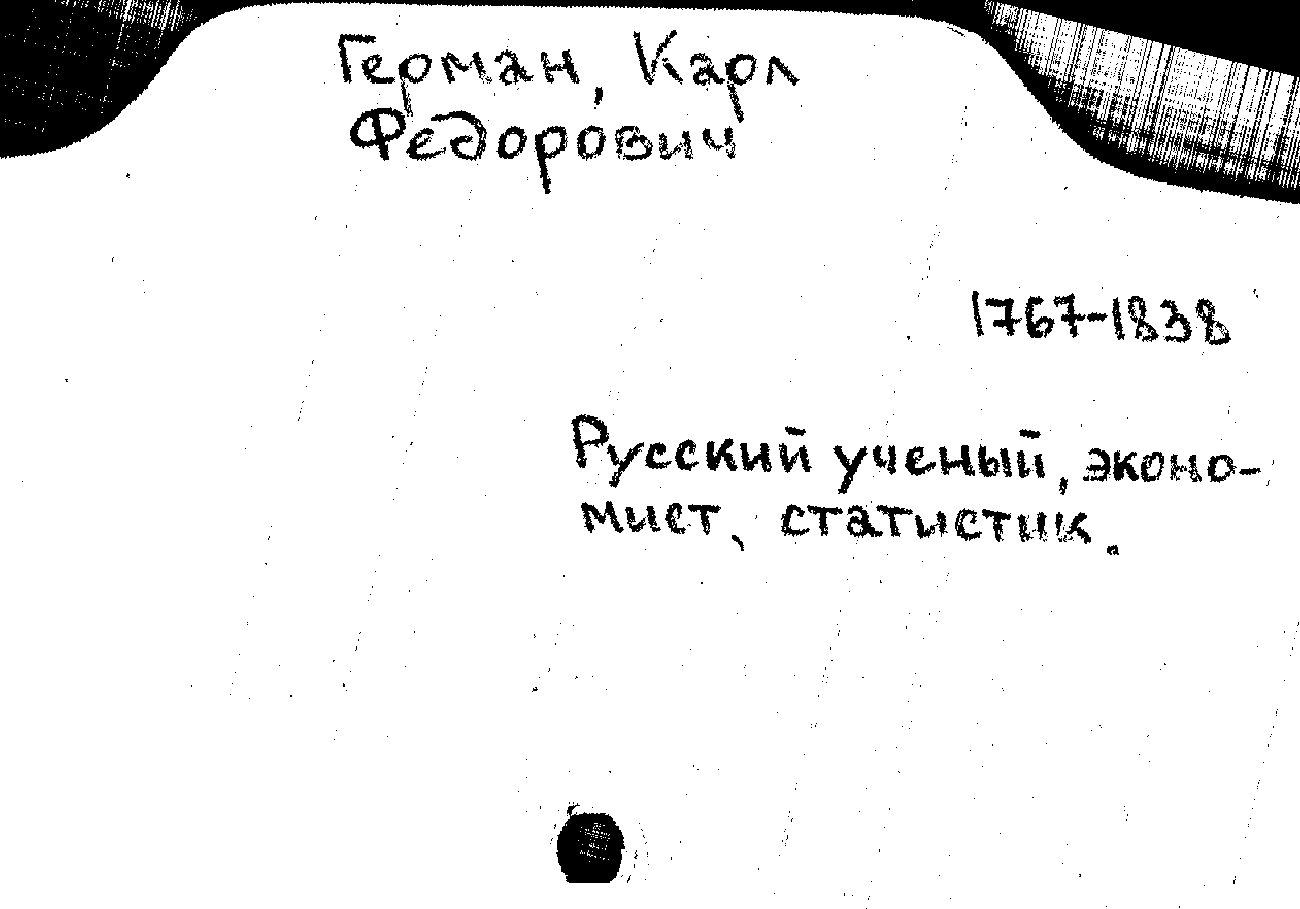 Герман, Карл
Федорович
1767-1838
Русский ученый, эконо-
мист, статистик.